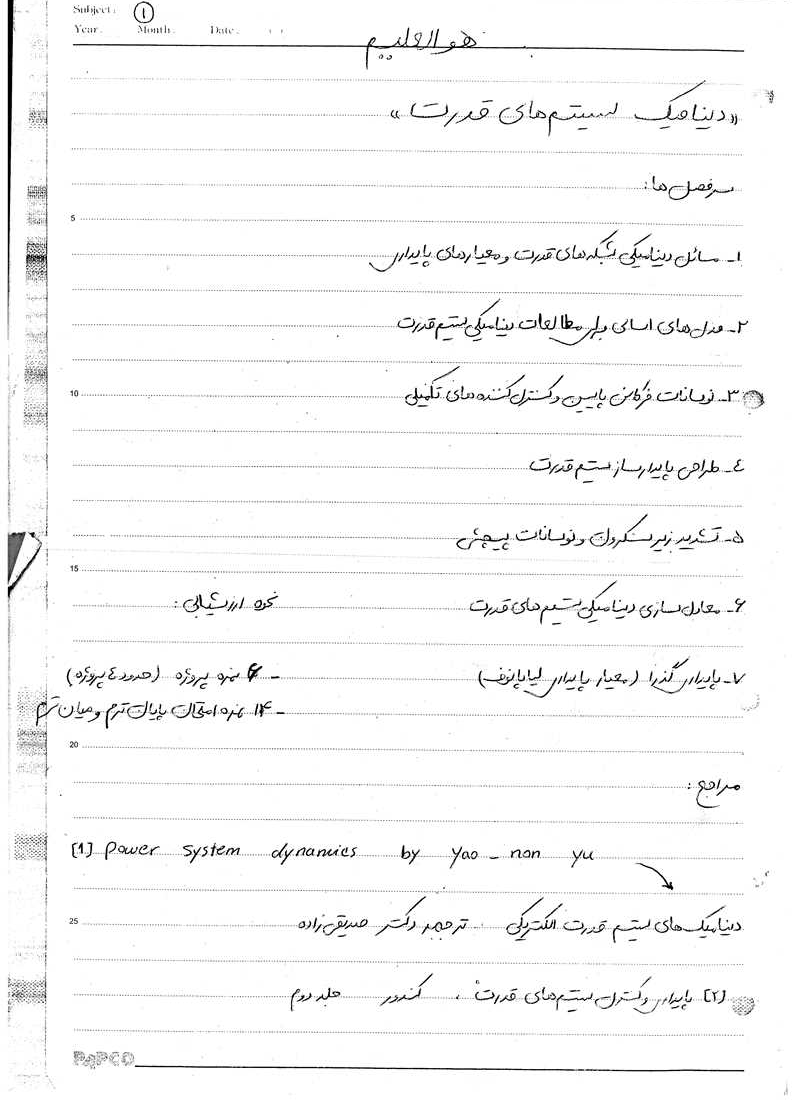 Subject: ①
Year. Month. Date. ( )
هو العلیم
«دینامیک سیستم‌های قدرت»
سرفصل ها:
5
۱- مسائل دینامیکی شبکه‌های قدرت و معیارهای پایداری
۲- مدل‌های اساسی برای مطالعات دینامیکی سیستم قدرت
10
۳- نوسانات فرکانس پایین و کنترل کننده‌های تکمیلی
٤- طراحی پایدارساز سیستم قدرت
۵- تشدید زیر سنکرون و نوسانات پیچشی
15
۶- معادل سازی دینامیکی سیستم‌های قدرت
نحوه ارزشیابی:
۷- پایداری گذرا (معیار پایداری لیاپانوف)
- ۶ نمره پروژه (حدود ٤ پروژه)
- ۱۴ نمره امتحان پایان ترم و میان ترم
20
مراجع:
[1] Power system dynamics by Yao-nan yu
25
دینامیک‌های سیستم قدرت الکتریکی ترجمه دکتر صدیقی زاده
[۲] پایداری و کنترل سیستم‌های قدرت، کندور جلد دوم
PAPCO